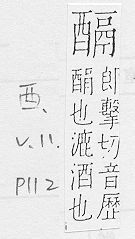 郎擊切音歷
也漉酒也
酉、
V.11.
P112